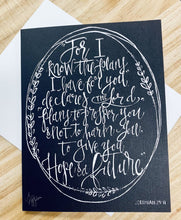 "For I
know the plans
I have for you,
declares the Lord,
plans to prosper you
& not to harm you,
to give you
Hope & a future."
JEREMIAH 29:11